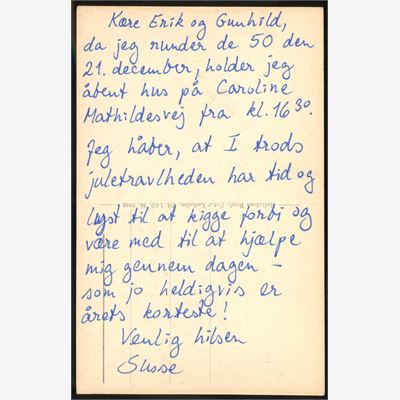 Kære Erik og Gunhild,
da jeg runder de 50 den
21. december, holder jeg
åbent hus på Caroline
Mathildesvej fra kl. 16³⁰.
Jeg håber, at I trods
juletravlheden har tid og
lyst til at kigge forbi og
være med til at hjælpe
mig gennem dagen –
som jo heldigvis er
årets korteste!
Venlig hilsen